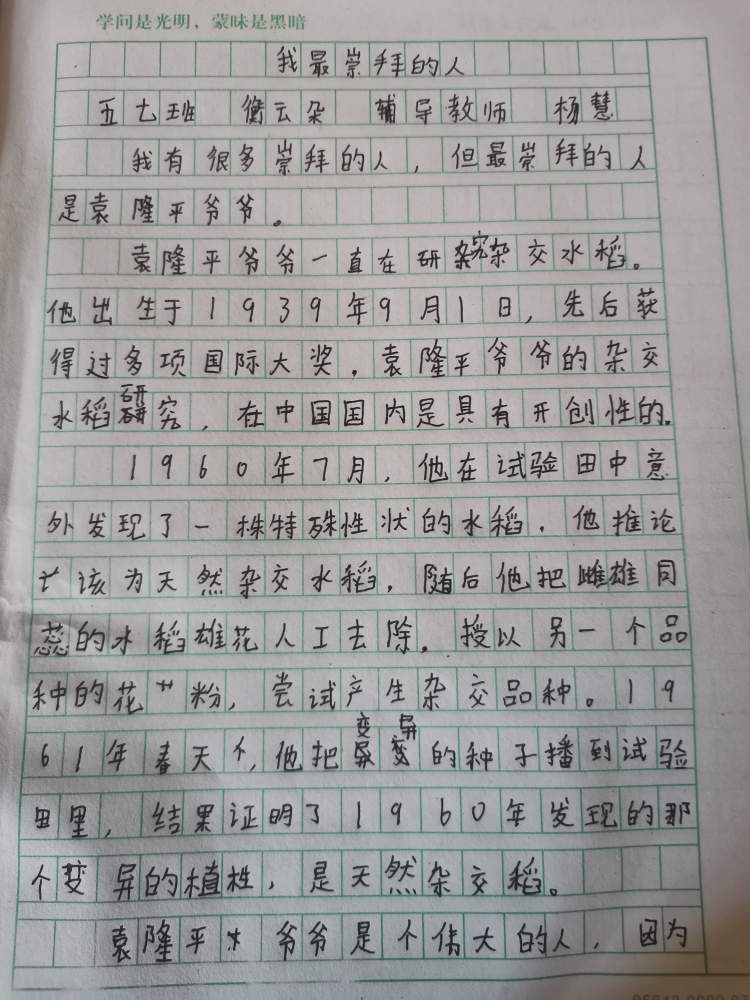 学问是光明，蒙昧是黑暗
我最崇拜的人
五七班 衡云朵 辅导教师 杨慧
我有很多崇拜的人，但最崇拜的人
是袁隆平爷爷。
袁隆平爷爷一直在研究杂交水稻。
他出生于1939年9月1日，先后获
得过多项国际大奖。袁隆平爷爷的杂交
水稻研究，在中国国内是具有开创性的。
1960年7月，他在试验田中意
外发现了一株特殊性状的水稻．他推论
该为天然杂交水稻．随后他把雌雄同
蕊的水稻雄花人工去除．授以另一个品
种的花粉，尝试产生杂交品种。19
61年春天，他把变异的种子播到试验
田里，结果证明了1960年发现的那
个变异的植株，是天然杂交稻。
袁隆平爷爷是个伟大的人，因为